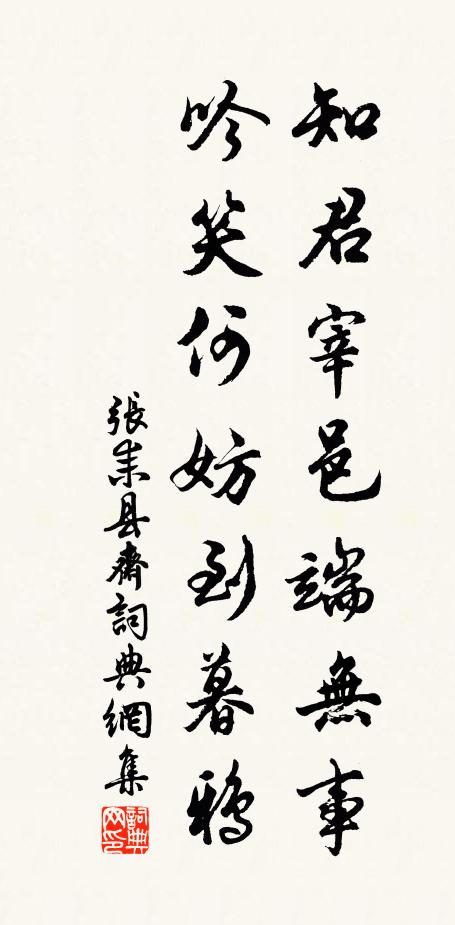 知君宰邑端無事
吟笑何妨到暮鴉
張耒县齋詞典網集
詞典网印